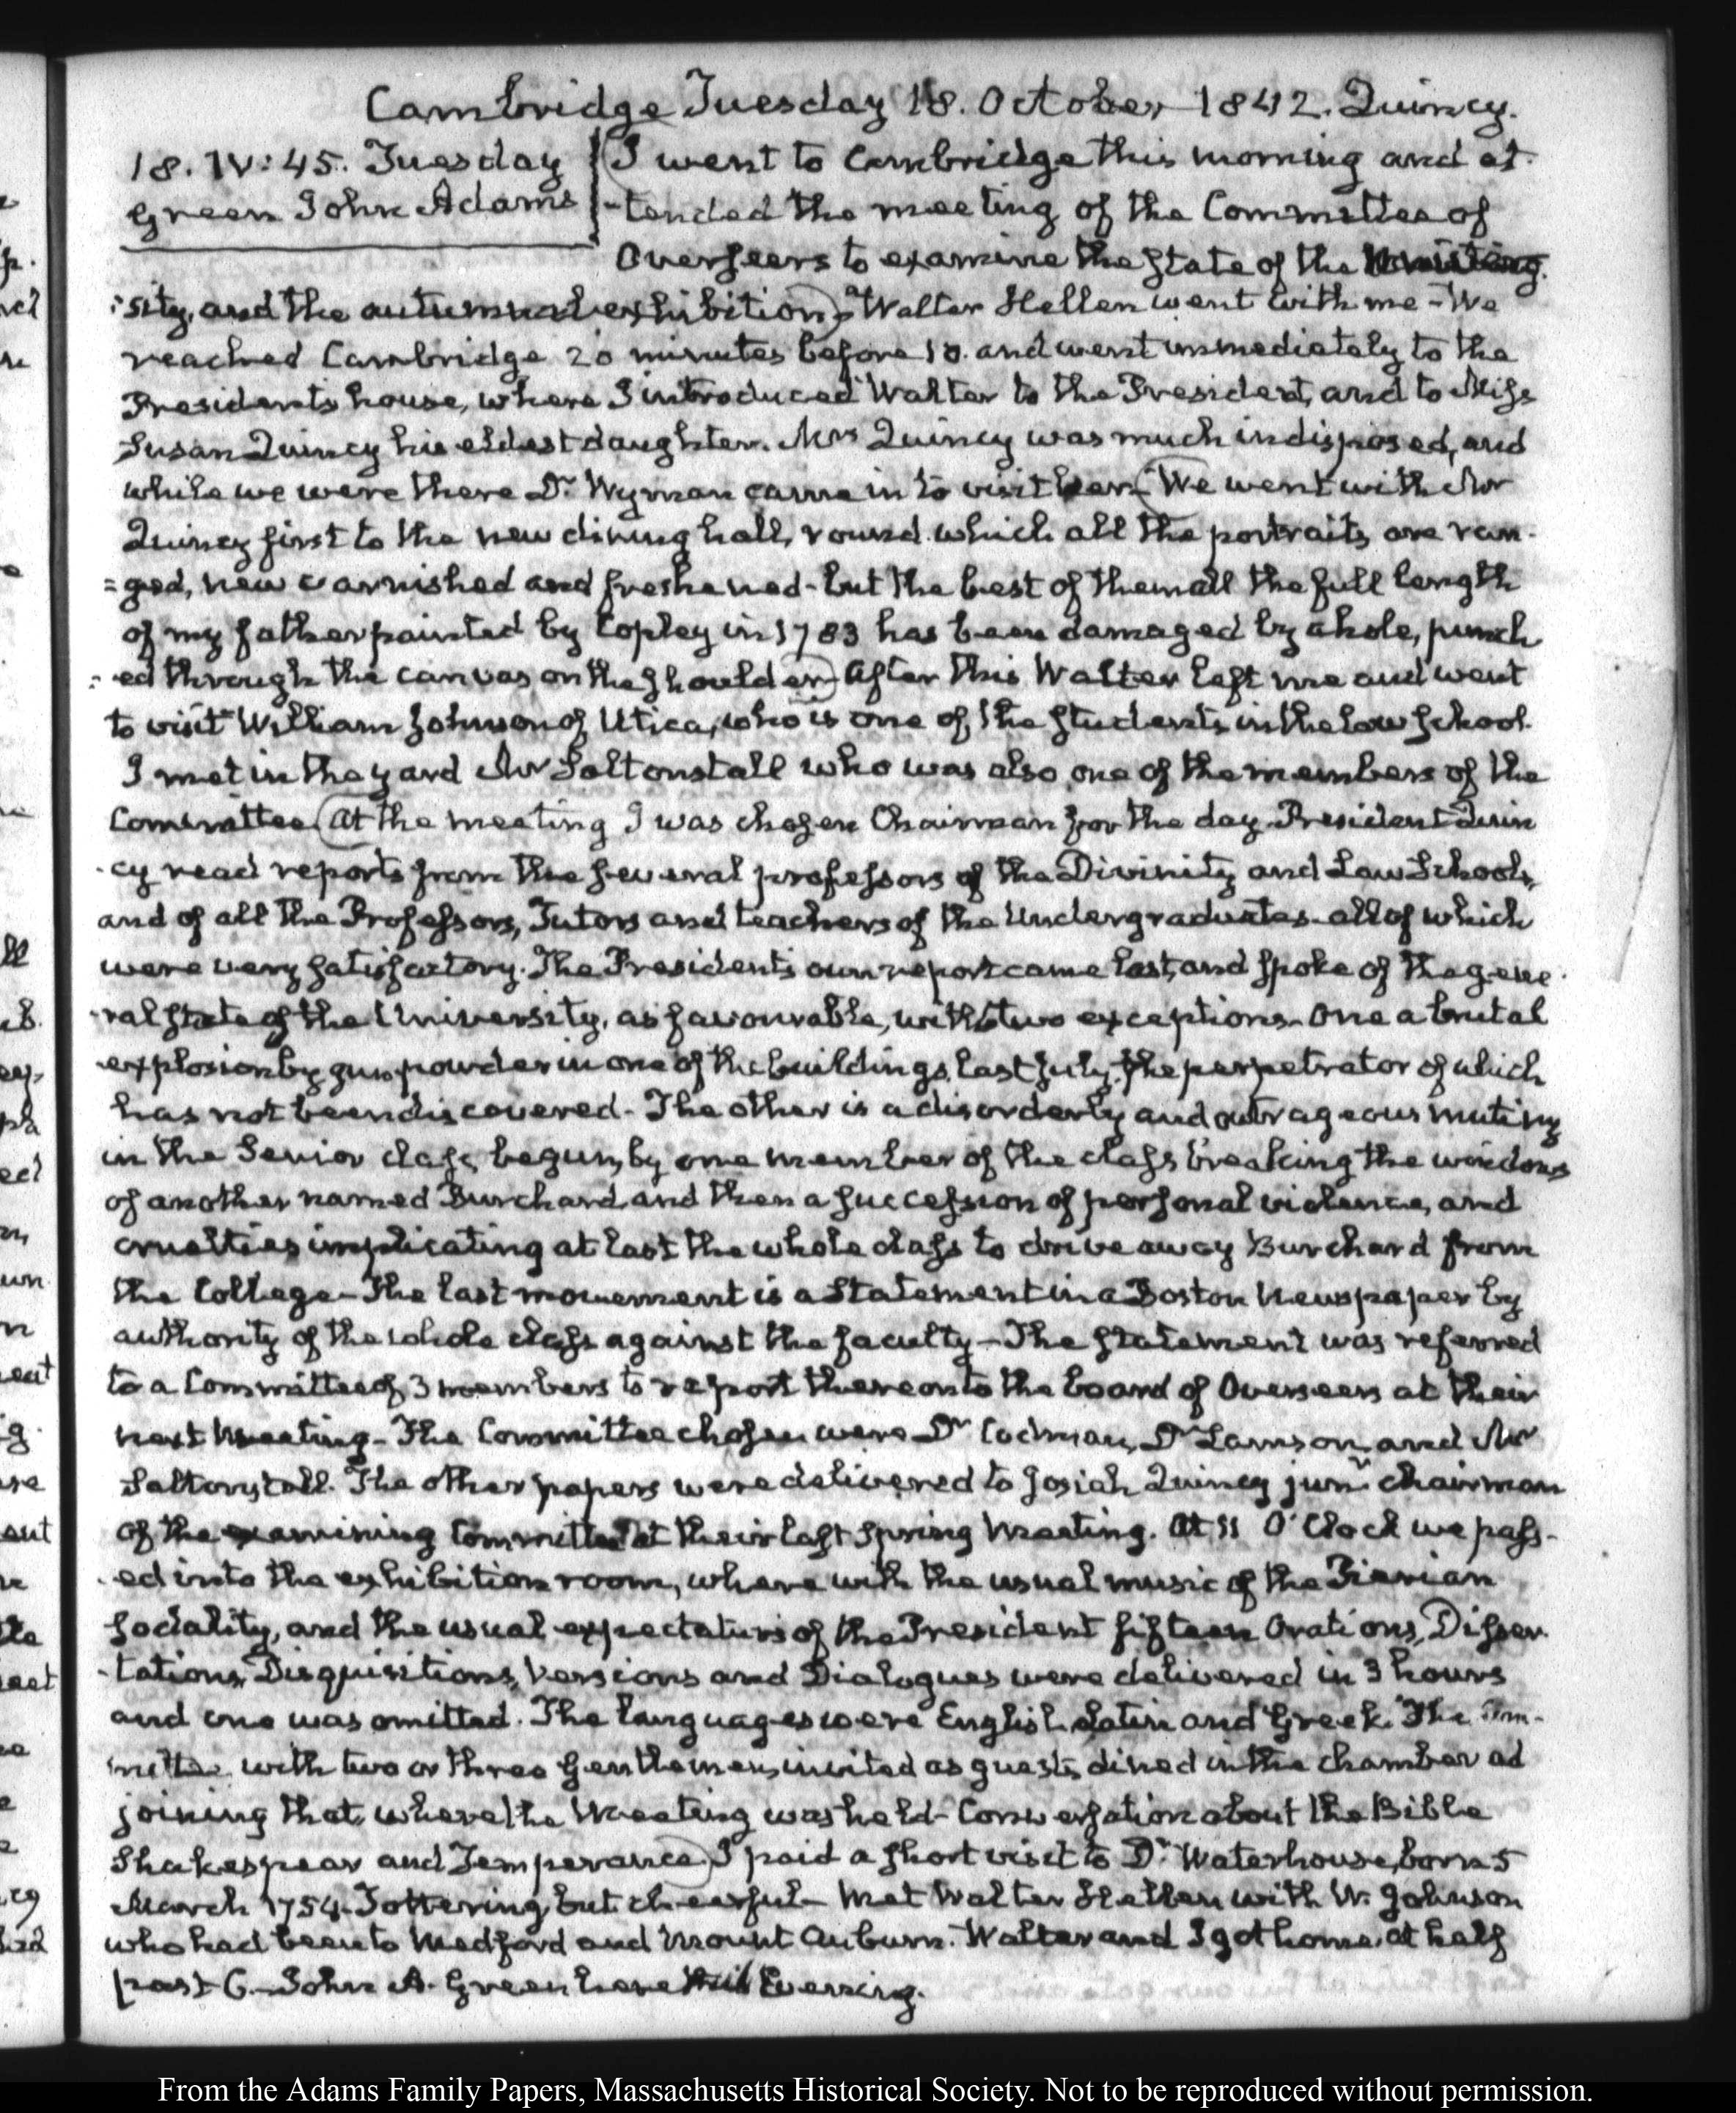 Cambridge Tuesday 18. October 1842. Quincy.
18. IV:45. Tuesday
Green John Adams
I went to Cambridge this morning and at-
-tended the meeting of the Committee of
Overseers to examine the state of the
sity, and the autumnal exhibition, Walter Hellen went with me - We
reached Cambridge 20 minutes before 10. and went immediately to the
Presidents house, where I introduced Walter to the President, and to Miss
Susan Quincy his eldest daughter. Mrs Quincy was much indisposed, and
while we were there Dr Wyman came in to visit her. We went with Mr
Quincy first to the new dining hall, round which all the portraits are ran-
=ged, new varnished and freshened - but the best of them all the full length
of my father painted by Copley in 1783 has been damaged by a hole, punch
-ed through the canvas on the shoulder. After this Walter left me and went
to visit William Johnson of Utica, who is one of the students in the law school.
I met in the yard Mr Saltonstall who was also one of the members of the
Committee. At the meeting I was chosen Chairman for the day. President Quin
-cy read reports from the several professors of the Divinity and Law Schools,
and of all the Professors, Tutors and teachers of the Undergraduates - all of which
were very satisfactory. The President's own report came last, and spoke of the gene
-ral state of the University, as favourable, with two exceptions. One a brutal
explosion by gunpowder in one of the buildings last July, the perpetrator of which
has not been discovered - The other is a disorderly and outrageous mutiny
in the Senior class, begun, by one member of the class breaking the windows
of another named Burchard and then a succession of personal violence, and
cruelties implicating at last the whole class to drive away Burchard from
the College - The last movement is a Statement in a Boston Newspaper by
authority of the whole class against the faculty - The statement was referred
to a Committee of 3 members to report thereon to the board of Overseers at their
next meeting - The Committee chosen were Dr Codman, Dr Lamson, and Mr
Saltonstall. The other papers were delivered to Josiah Quincy junr. chairman
of the examining Committee at their last spring meeting. At 11 O'Clock we pass-
-ed into the exhibition room, where with the usual music of the Pierian
Sodality, and the usual expectaturs of the President fifteen Orations, Disser-
-tations, Disquisitions, Versions and Dialogues were delivered in 3 hours
and one was omitted. The languages were English, Latin and Greek. The Com-
mittee with two or three Gentlemen, invited as guests dined in the chamber ad
joining that, where the meeting was held - Conversation about the Bible
Shakespear and Temperance. I paid a short visit to Dr Waterhouse, born 5
March 1754. Tottering but cheerful - Met Walter Hellen with W. Johnson
who had been to Medford and Mount Auburn. Walter and I got home at half
past 6. - John A. Green here this Evening.
From the Adams Family Papers, Massachusetts Historical Society. Not to be reproduced without permission.